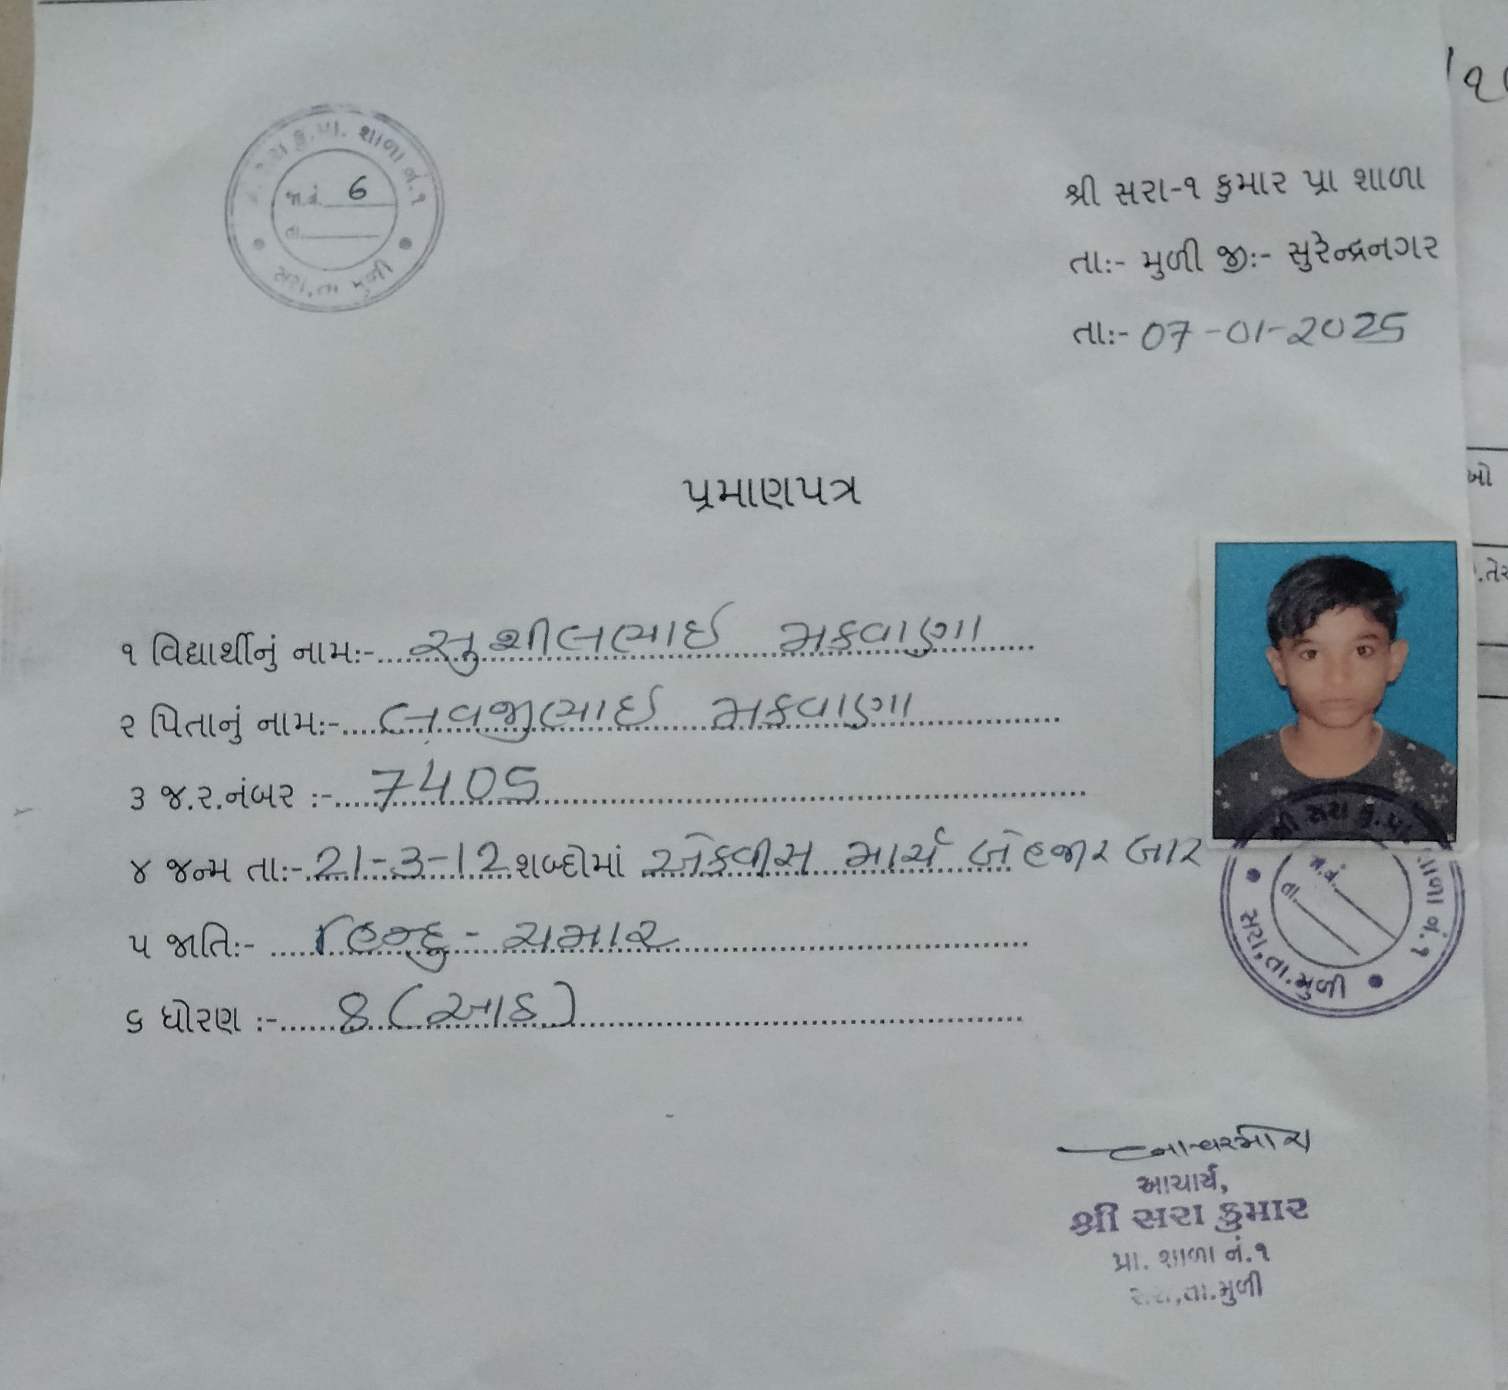 કુ.પ્રા. શાળા નં.૧
જા.નં. 6
તા.
સરા, તા. મુળી
શ્રી સરા-૧ કુમાર પ્રા શાળા
તા:- મુળી જી:- સુરેન્દ્રનગર
તા:- 07-01-2025
પ્રમાણપત્ર
૧ વિદ્યાર્થીનું નામ:- સુશીલભાઈ મકવાણા
૨ પિતાનું નામ:- લવજીભાઈ મકવાણા
૩ જ.ર.નંબર :- 7405
૪ જન્મ તા:- 21-3-12 શબ્દોમાં એકવીસ માર્ચ બેહજાર બાર
૫ જાતિ:- હિન્દુ - ચમાર
૬ ધોરણ :- 8 (આઠ)
શ્રી સરા કુ.પ્રા. શાળા નં.૧
જા.નં.
તા.
સરા, તા.મુળી
આચાર્ય,
શ્રી સરા કુમાર
પ્રા. શાળા નં.૧
સરા,તા.મુળી